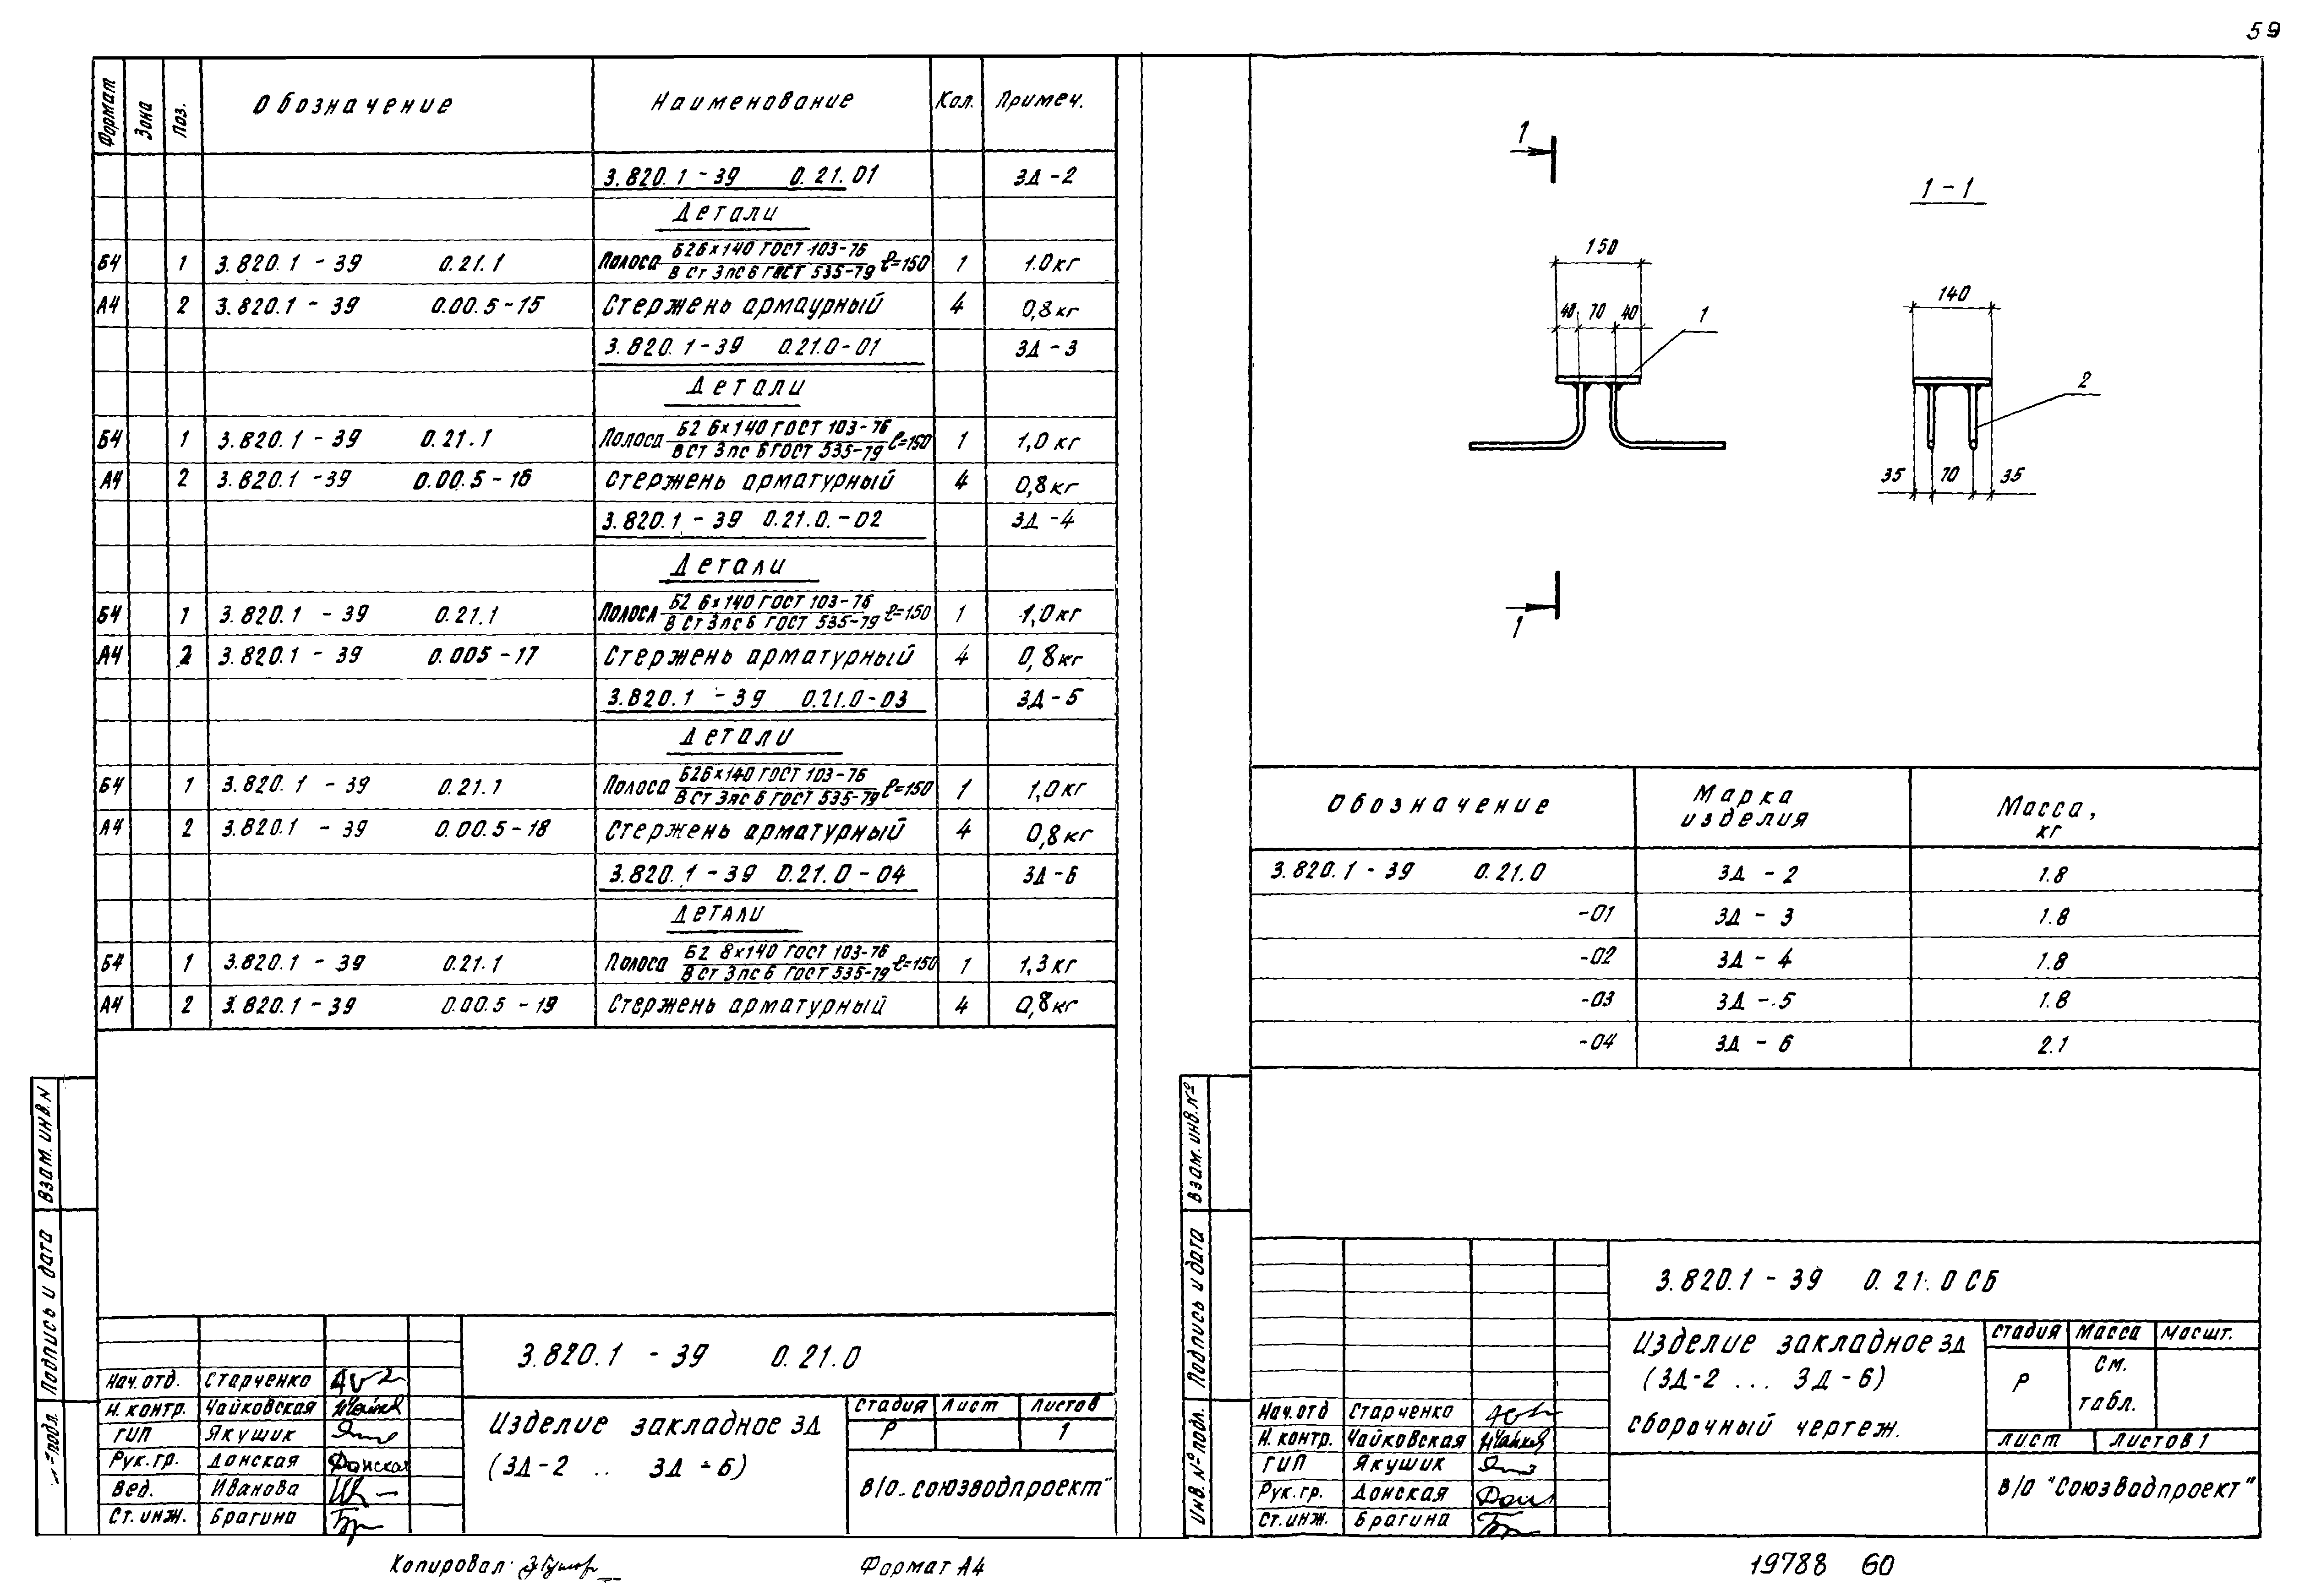 59
Формат Зона Поз. Обозначение Наименование Кол. Примеч.
3.820.1-39 0.21.01 ЗД-2
Детали
Б4 1 3.820.1-39 0.21.1 Полоса Б2 6×140 ГОСТ 103-76 / В Ст 3 пс 6 ГОСТ 535-79 ℓ=150 1 1.0 кг
А4 2 3.820.1-39 0.00.5-15 Стержень армаурный 4 0,8 кг
3.820.1-39 0.21.0-01 ЗД-3
Детали
Б4 1 3.820.1-39 0.21.1 Полоса Б2 6×140 ГОСТ 103-76 / В Ст 3 пс 6 ГОСТ 535-79 ℓ=150 1 1,0 кг
А4 2 3.820.1-39 0.00.5-16 Стержень арматурный 4 0,8 кг
3.820.1-39 0.21.0.-02 ЗД-4
Детали
Б4 1 3.820.1-39 0.21.1 Полоса Б2 6×140 ГОСТ 103-76 / В Ст 3 пс 6 ГОСТ 535-79 ℓ=150 1 1,0 кг
А4 2 3.820.1-39 0.005-17 Стержень арматурный 4 0,8 кг
3.820.1-39 0.21.0-03 ЗД-5
Детали
Б4 1 3.820.1-39 0.21.1 Полоса Б2 6×140 ГОСТ 103-76 / В Ст 3 пс 6 ГОСТ 535-79 ℓ=150 1 1,0 кг
А4 2 3.820.1-39 0.00.5-18 Стержень арматурный 4 0,8 кг
3.820.1-39 0.21.0-04 ЗД-6
Детали
Б4 1 3.820.1-39 0.21.1 Полоса Б2 8×140 ГОСТ 103-76 / В Ст 3 пс 6 ГОСТ 535-79 ℓ=150 1 1,3 кг
А4 2 3.820.1-39 0.00.5-19 Стержень арматурный 4 0,8 кг
Взам. инв. N
Подпись и дата
подл.
3.820.1-39 0.21.0
Нач. отд. Старченко
Н. контр. Чайковская
ГИП Якушик
Рук. гр. Донская
Вед. Иванова
Ст. инж. Брагина
Изделие закладное ЗД
(ЗД-2 .. ЗД-6)
Стадия Лист Листов
Р 1
в/о „союзводпроект"
Копировал:
Формат А4
1
1-1
150
40 70 40
1
140
2
35 70 35
1
Обозначение Марка изделия Масса, кг
3.820.1-39 0.21.0 ЗД-2 1.8
-01 ЗД-3 1.8
-02 ЗД-4 1.8
-03 ЗД-5 1.8
-04 ЗД-6 2.1
Взам. инв. №
Подпись и дата
Инв. № подл.
3.820.1-39 0.21.0 СБ
Изделие закладное ЗД
(ЗД-2 ... ЗД-6)
сборочный чертеж.
Стадия Масса Масшт.
Р См. табл.
Лист Листов 1
в/о "Союзводпроект"
Нач. отд Старченко
Н. контр. Чайковская
ГИП Якушик
Рук. гр. Донская
Ст. инж. Брагина
19788 60